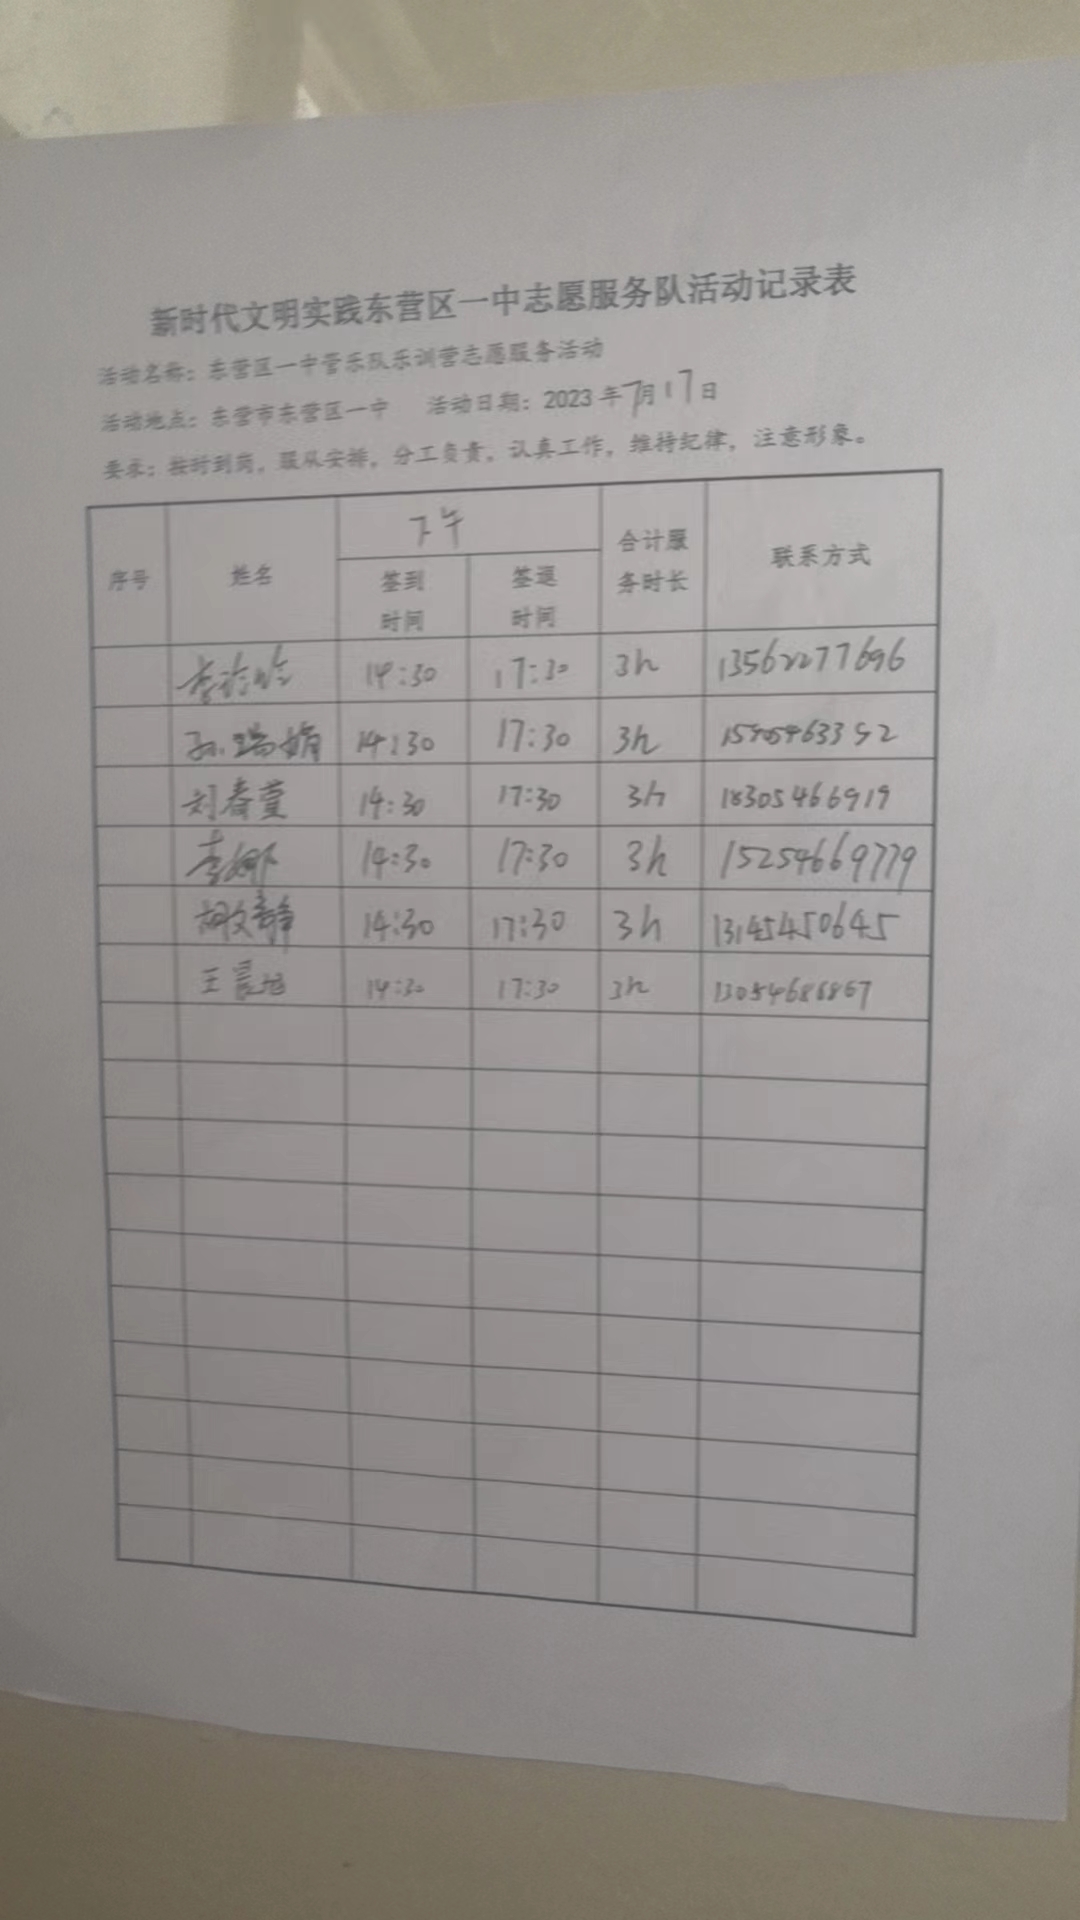 新时代文明实践东营区一中志愿服务队活动记录表
活动名称：东营区一中管乐队乐训营志愿服务活动
活动地点：东营市东营区一中 活动日期：2023 年7月17日
要求：按时到岗，服从安排，分工负责，认真工作，维持纪律，注意形象。
序号 姓名 下午 合计服务时长 联系方式
签到时间 签退时间
14:30 17:30 3h 13562277696
孙瑞娟 14:30 17:30 3h
刘春萱 14:30 17:30 3h 18305466919
李娜 14:30 17:30 3h 15254669779
胡文静 14:30 17:30 3h 13145450645
王晨旭 14:30 17:30 3h 13054686867